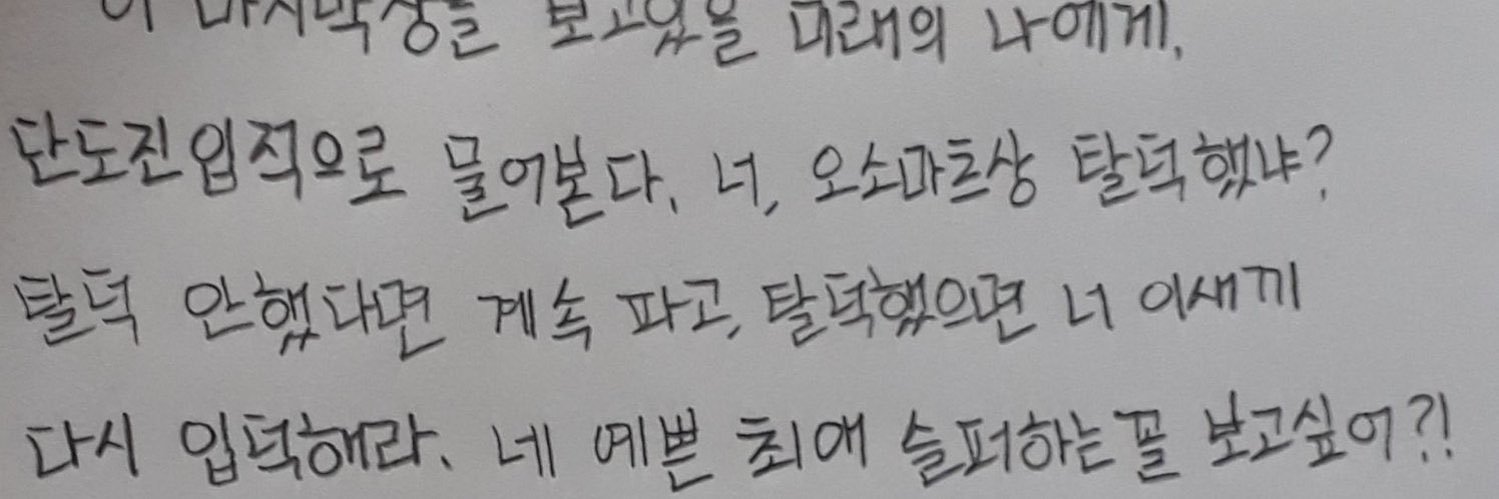 이 마지막장을 보고있을 미래의 나에게,
단도진입적으로 물어본다. 너, 오소마츠상 탈덕했냐?
탈덕 안했다면 계속 파고, 탈덕했으면 너 이새끼
다시 입덕해라. 네 예쁜 최애 슬퍼하는꼴 보고싶어?!